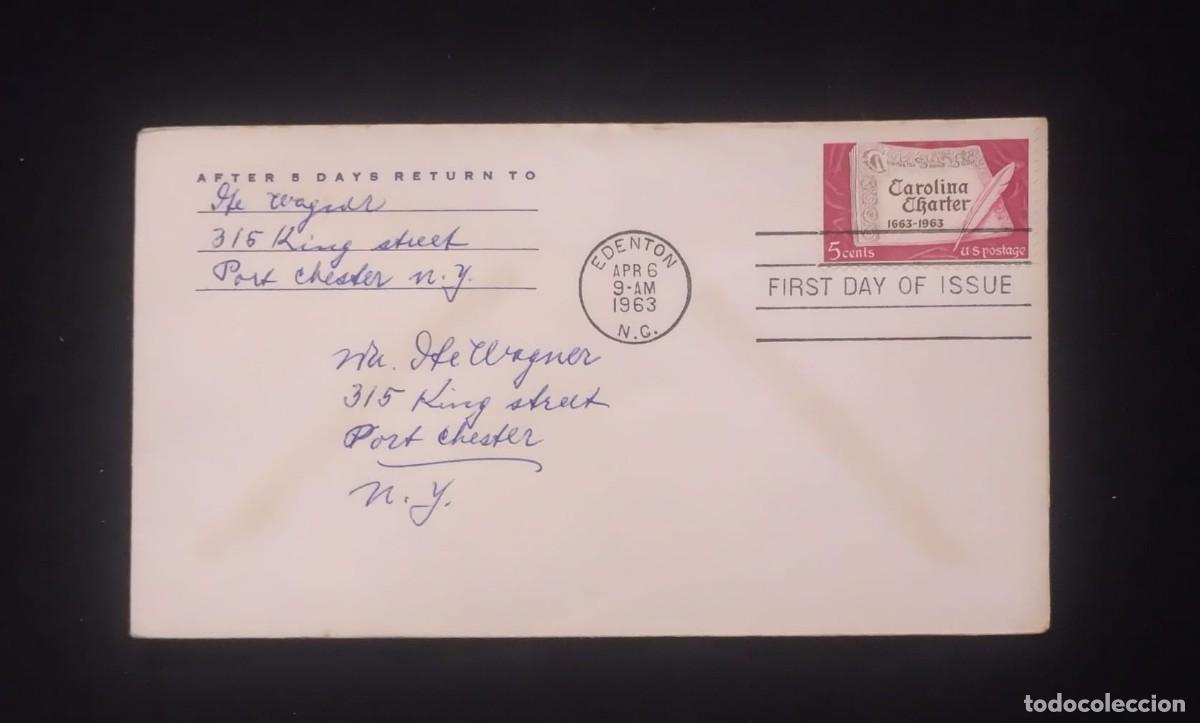 AFTER 5 DAYS RETURN TO
Ife Wagner
315 King street
Port Chester N.Y.
Carolina
Charter
1663-1963
5 cents
U S postage
EDENTON
APR 6
9-AM
1963
N.C.
FIRST DAY OF ISSUE
Ife Wagner
315 King street
Port Chester
N.Y.
todocoleccion